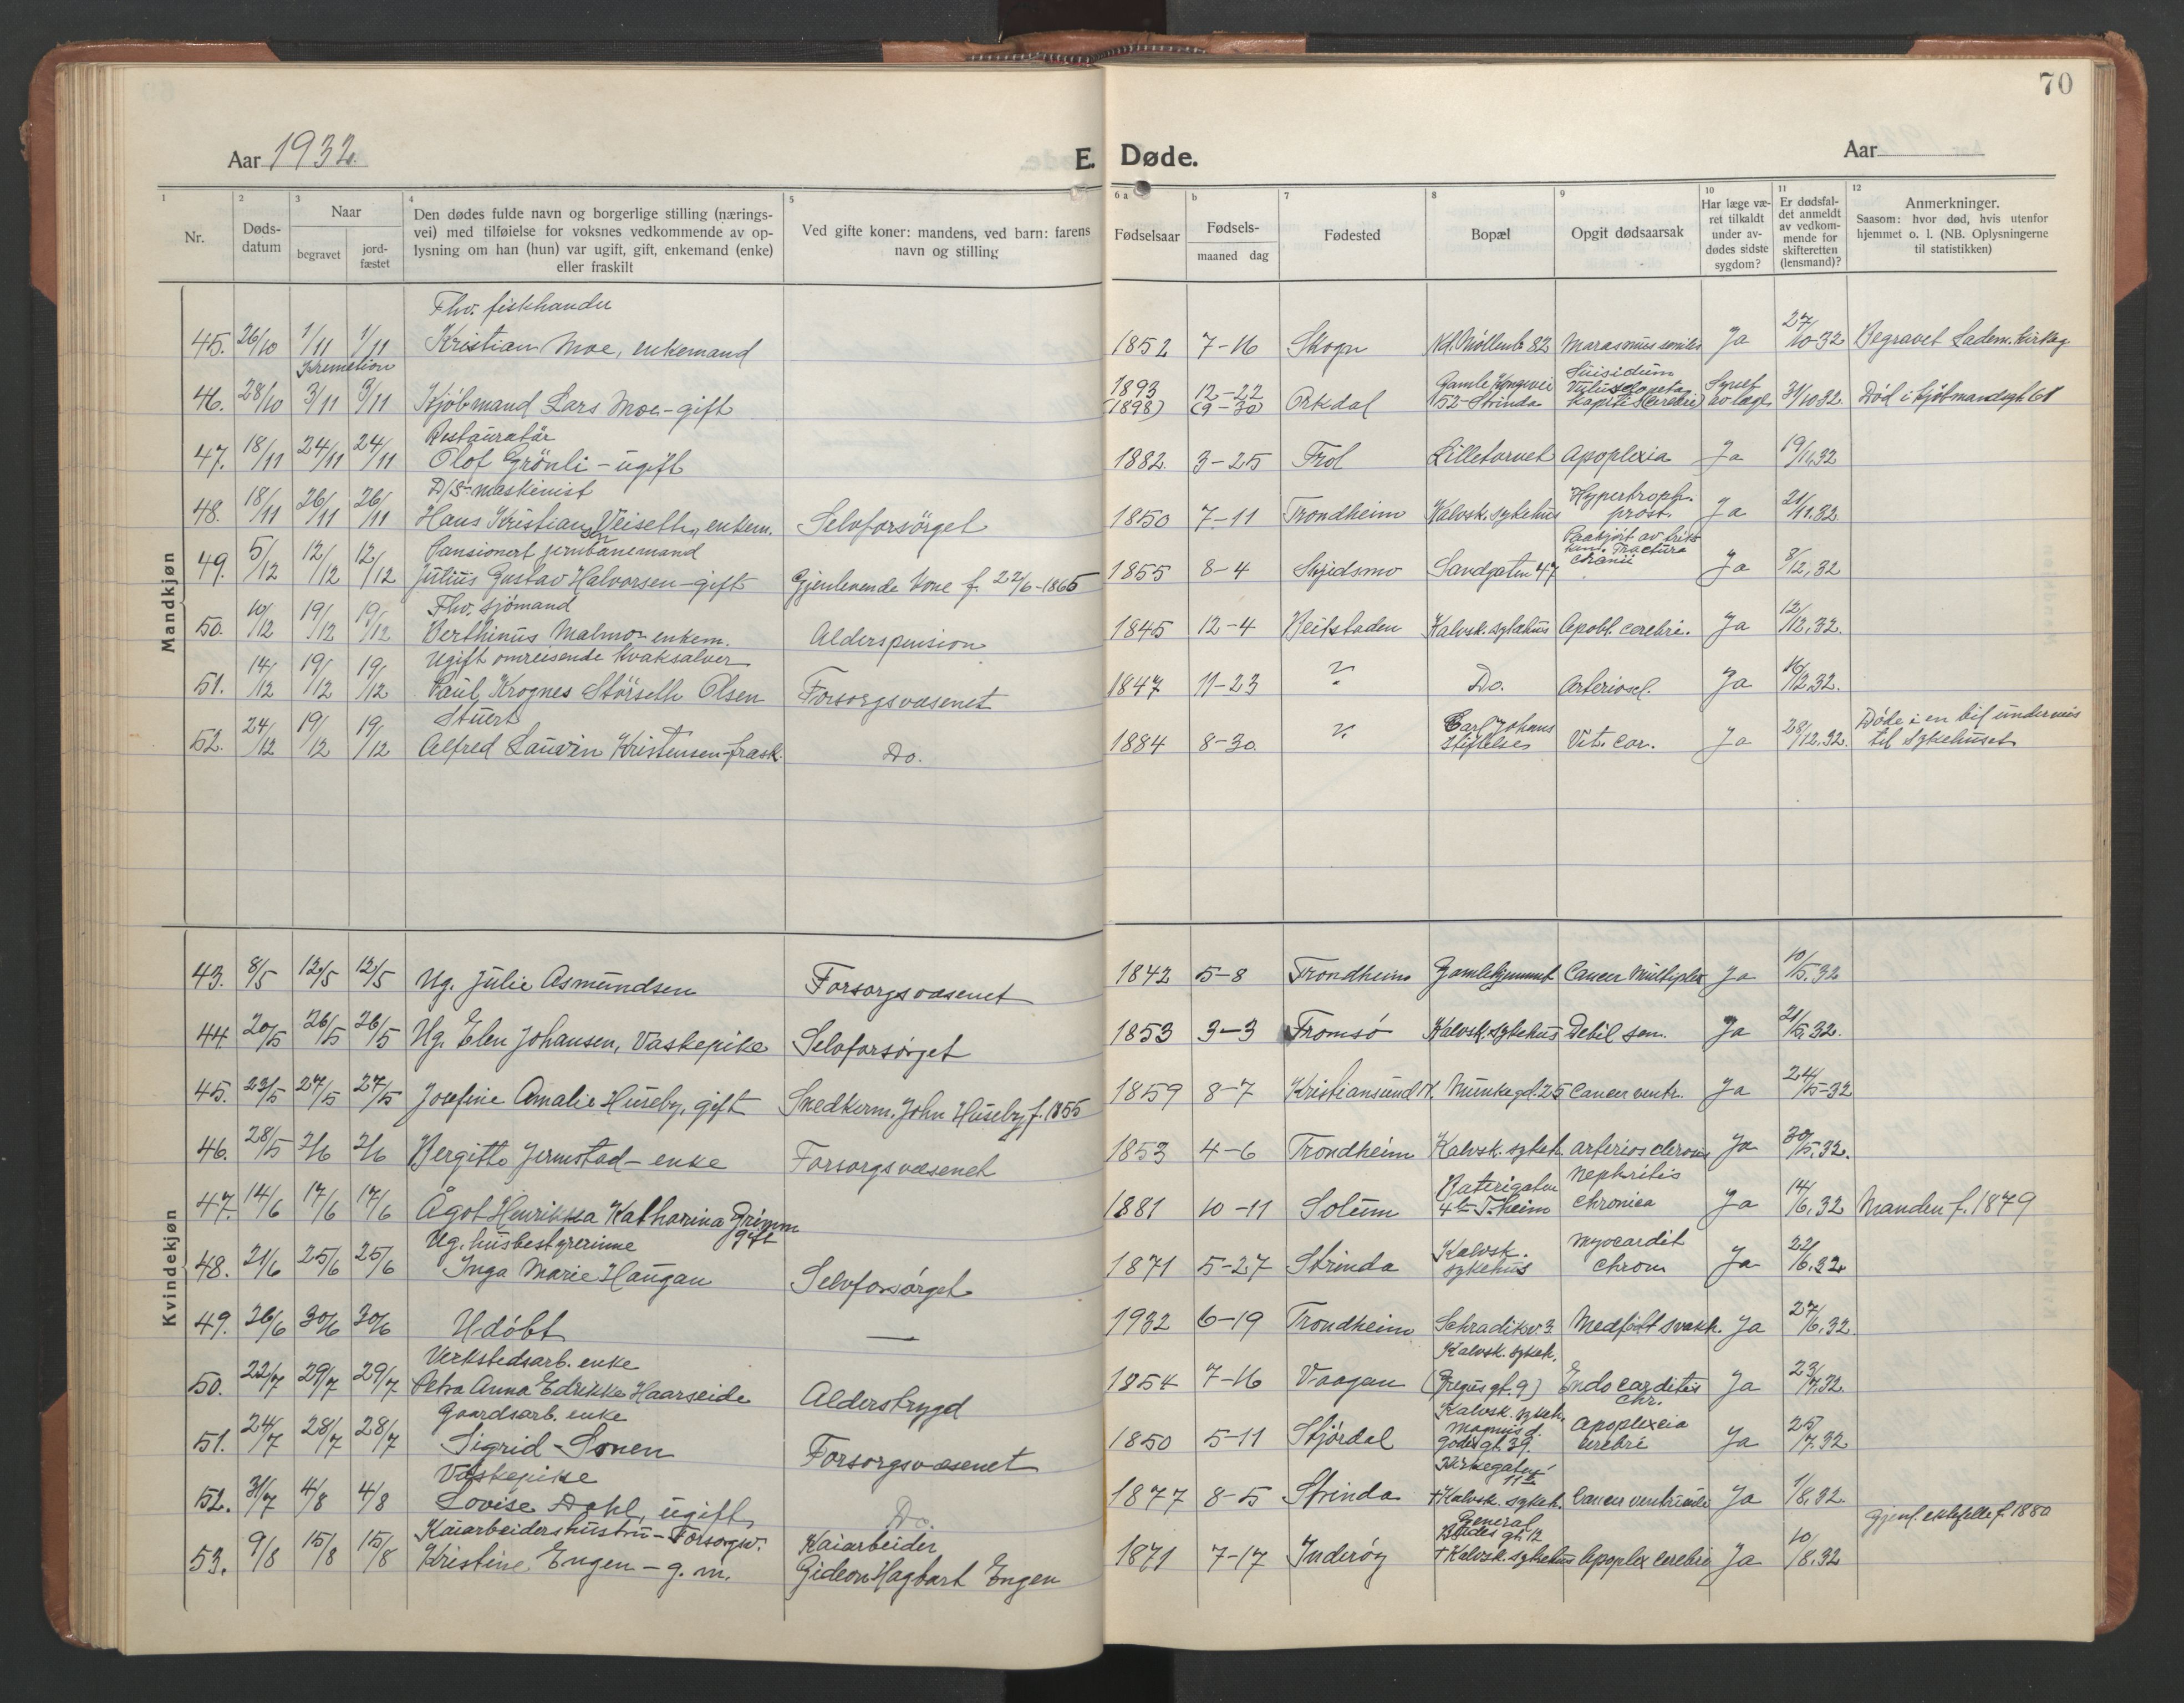 70
Aar 1932.
E. Døde.
Aar
1 2 3 4 5 6 a b 7 8 9 10 11 12
Nr.
Døds-
datum
Naar
begravet
jord-
fæstet
Den dødes fulde navn og borgerlige stilling (nærings-
vei) med tilføielse for voksnes vedkommende av op-
lysning om han (hun) var ugift, gift, enkemand (enke)
eller fraskilt
Ved gifte koner: mandens, ved barn: farens
navn og stilling
Fødselsaar
Fødsels-
maaned dag
Fødested
Bopæl
Opgit dødsaarsak
Har læge væ-
ret tilkaldt
under av-
dødes sidste
sygdom?
Er dødsfal-
det anmeldt
av vedkom-
mende for
skifteretten
(lensmand)?
Anmerkninger.
Saasom: hvor død, hvis utenfor
hjemmet o. l. (NB. Oplysningerne
til statistikken)
Mandkjøn
Fhv. fiskhandler
45. 26/10 1/11 1/11 Kristian Moe, enkemand 1852 7-16 Skogn Nd. Møllenb 82 Marasmus senilis Ja 27/10-32 Begravet Ladem. Kirkeg
Kremetion
46. 28/10 3/11 3/11 Kjøbmand Lars Moe-gift 1893 (1898) 12-22 (9-30) Orkedal Gamle Kongevei 52-Strinda Suisidum kapitis (cerebri) Synet av læge 31/10 32. Død i Kjøbmandsgt 61
Restauratør
47. 18/11 24/11 24/11 Olof Grönli - ugift 1882 3-25 Frol Lilletorvet Apoplexia Ja 19/11,32
D/S-maskinist
48. 18/11 26/11 26/11 Hans Kristian Veiseth, enkem. Selvforsörget 1850 7-11 Trondheim Kalvsk. sykehus Hypertroph. prost. Ja 21/11.32
Pansionert jernbanemand
49. 5/12 12/12 12/12 Julius Gustav Halvorsen-gift Gjenlevende kone f. 22/6-1865 1855 8-4 Skjidsmo Sandgaten 47 Paakjört av Fractura cranii Ja 8/12,32
Fhv. sjömand
50. 10/12 19/12 19/12 Berthinus Malmo - enkem. Alderspension 1845 12-4 Beitstaden Kalvsk. sykehus Apopl. cerebri. Ja 12/12,32.
Ugift omreisende kvaksalver
51. 14/12 19/12 19/12 Paul Krognes Störseth Olsen Forsorgsvæsenet 1847 11-23 ? Do. Arteriosel. Ja 16/12,32.
Stuert
52. 24/12 19/12 19/12 Alfred Lauvin Kristensen-frask. Do. 1884 8-30 ? Carl Johans stiftelses Vit. cor. Ja 28/12.32. Døde i en bil underveis til sykehuset
Kvindekjøn
43. 8/5 12/5 12/5 Ug. Julie Asmundsen Forsorgsvæsenet 1842 5-8 Trondheim Gamlehjemmet Cancer Multiplex Ja 10/5.32
44. 20/5 26/5 26/5 Ug. Elen Johansen, Vaskepike Selvforsörget 1853 3-3 Tromsö Kalvsk. sykehus Debil sen. Ja 21/5,32.
45. 23/5 27/5 27/5 Josefine Amalie Huseby, gift Snedkerm. John Huseby f. 1855 1859 8-7 Kristiansund N. Munkegd. 25 Cancer ventr. Ja 24/5-32
46. 28/5 2/6 2/6 Bergitte Jermstad - enke Forsorgsvæsenet 1853 4-6 Trondheim Kalvsk. sykeh. arteriosclerosis Ja 30/5,32.
47. 14/6 17/6 17/6 Ågot Henrikka Katharina Grimm gift 1881 10-11 Solum Baterigaten 4b T.heim Nephritis chronica Ja 14/6,32 Manden f. 1879
Ug. husbestyrerinne
48. 21/6 25/6 25/6 Inga Marie Haugan Selvforsörget 1871 5-27 Strinda Kalvsk. sykehus Myocardit chron Ja 22/6,32
49. 26/6 30/6 30/6 Udöbt — 1932 6-19 Trondheim Schradikv. 3. Medfödt svakh. Ja 27/6,32.
Verkstedsarb. enke
50. 22/7 29/7 29/7 Petra Anna Edrikke Haarseide Alderstrygd 1854 7-16 Vaagan Kalvsk. sykeh. (Gregus gt. 9) Endocarditis chr. Ja 23/7.32.
Gaardsarb. enke
51. 24/7 28/7 28/7 Sigrid - Sonen Forsorgsvæsenet 1850 5-11 Stjördal Kalvsk. sykeh. Magnus d. godes gt. 39. Apoplexia cerebri Ja 25/7.32
Vaskepike
52. 31/7 4/8 4/8 Lovise Dahl, ugift, Do. 1877 8-5 Strinda Kirkegaten 11 † Kalvsk. sykeh. Cancer ventriculi Ja 1/8,32.
Kaiarbeidershustru - Forsorgsv.
53. 9/8 15/8 15/8 Kristine Engen - g. m. Kaiarbeider Gideon Hagbart Engen 1871 7-17 Inderöy General Buddes gt. 12 † Kalvsk. sykehus Apoplex cerebri Ja 10/8.32 Gjenl. ektefelle f. 1880